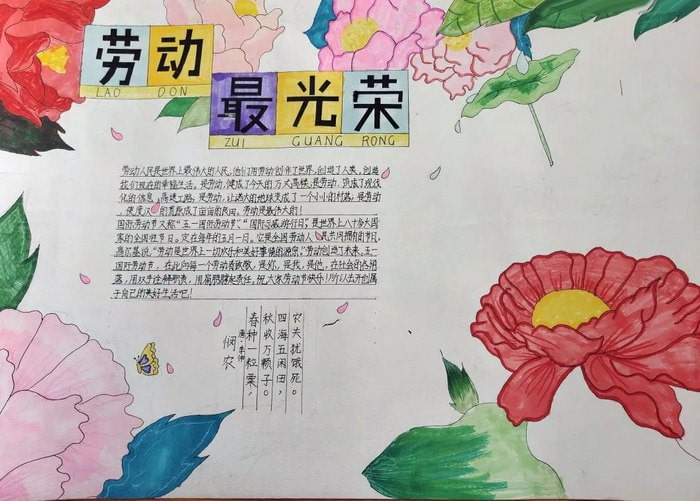 劳动
LAO DON
最光荣
ZUI GUANG RONG
劳动人民是世界上最伟大的人民,他们用劳动创作了世界,创造了人类,创造
我们现在的幸福生活。是劳动,建成了今天的万丈高楼;是劳动,筑成了现代
化的信息高速公路;是劳动,让偌大的地球变成了一个小小的村落;是劳动
,使漫漫的荒原成了亩亩的良田。劳动是最伟大的!
国际劳动节又称"五一国际劳动节""国际示威游行日",是世界上八十多个国
家的全国性节日。定在每年的五月一日。它是全国劳动人民共同拥有的节日。
高尔基说:"劳动是世界上一切欢乐和美好事情的源泉。"劳动创造了未来。五一
国际劳动节,在此向每一个劳动者致敬,是你,是我,是他,在社会的各角
落,用双手诠释职责,用肩膀撑起责任。祝大家劳动节快乐!所以去开创属
于自己的美好生活吧!
悯农
唐·李绅
春种一粒粟,
秋收万颗子。
四海五闲田,
农夫犹饿死。